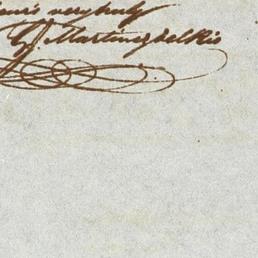 very truly
G. Martinez del Rio